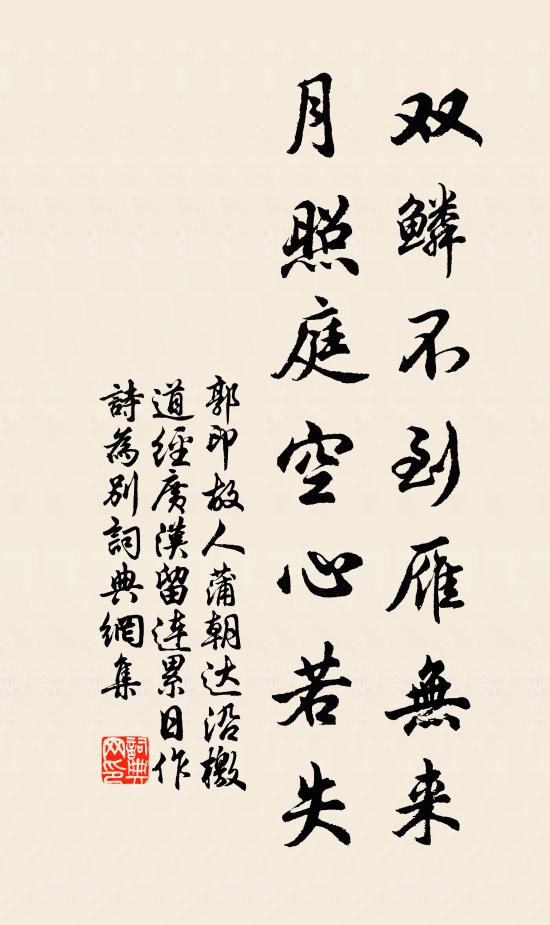 双鳞不到雁無来
月照庭空心若失
郭印故人蒲朝达沿檄
道經廣漢留连累日作
詩為别詞典網集
詞典網印